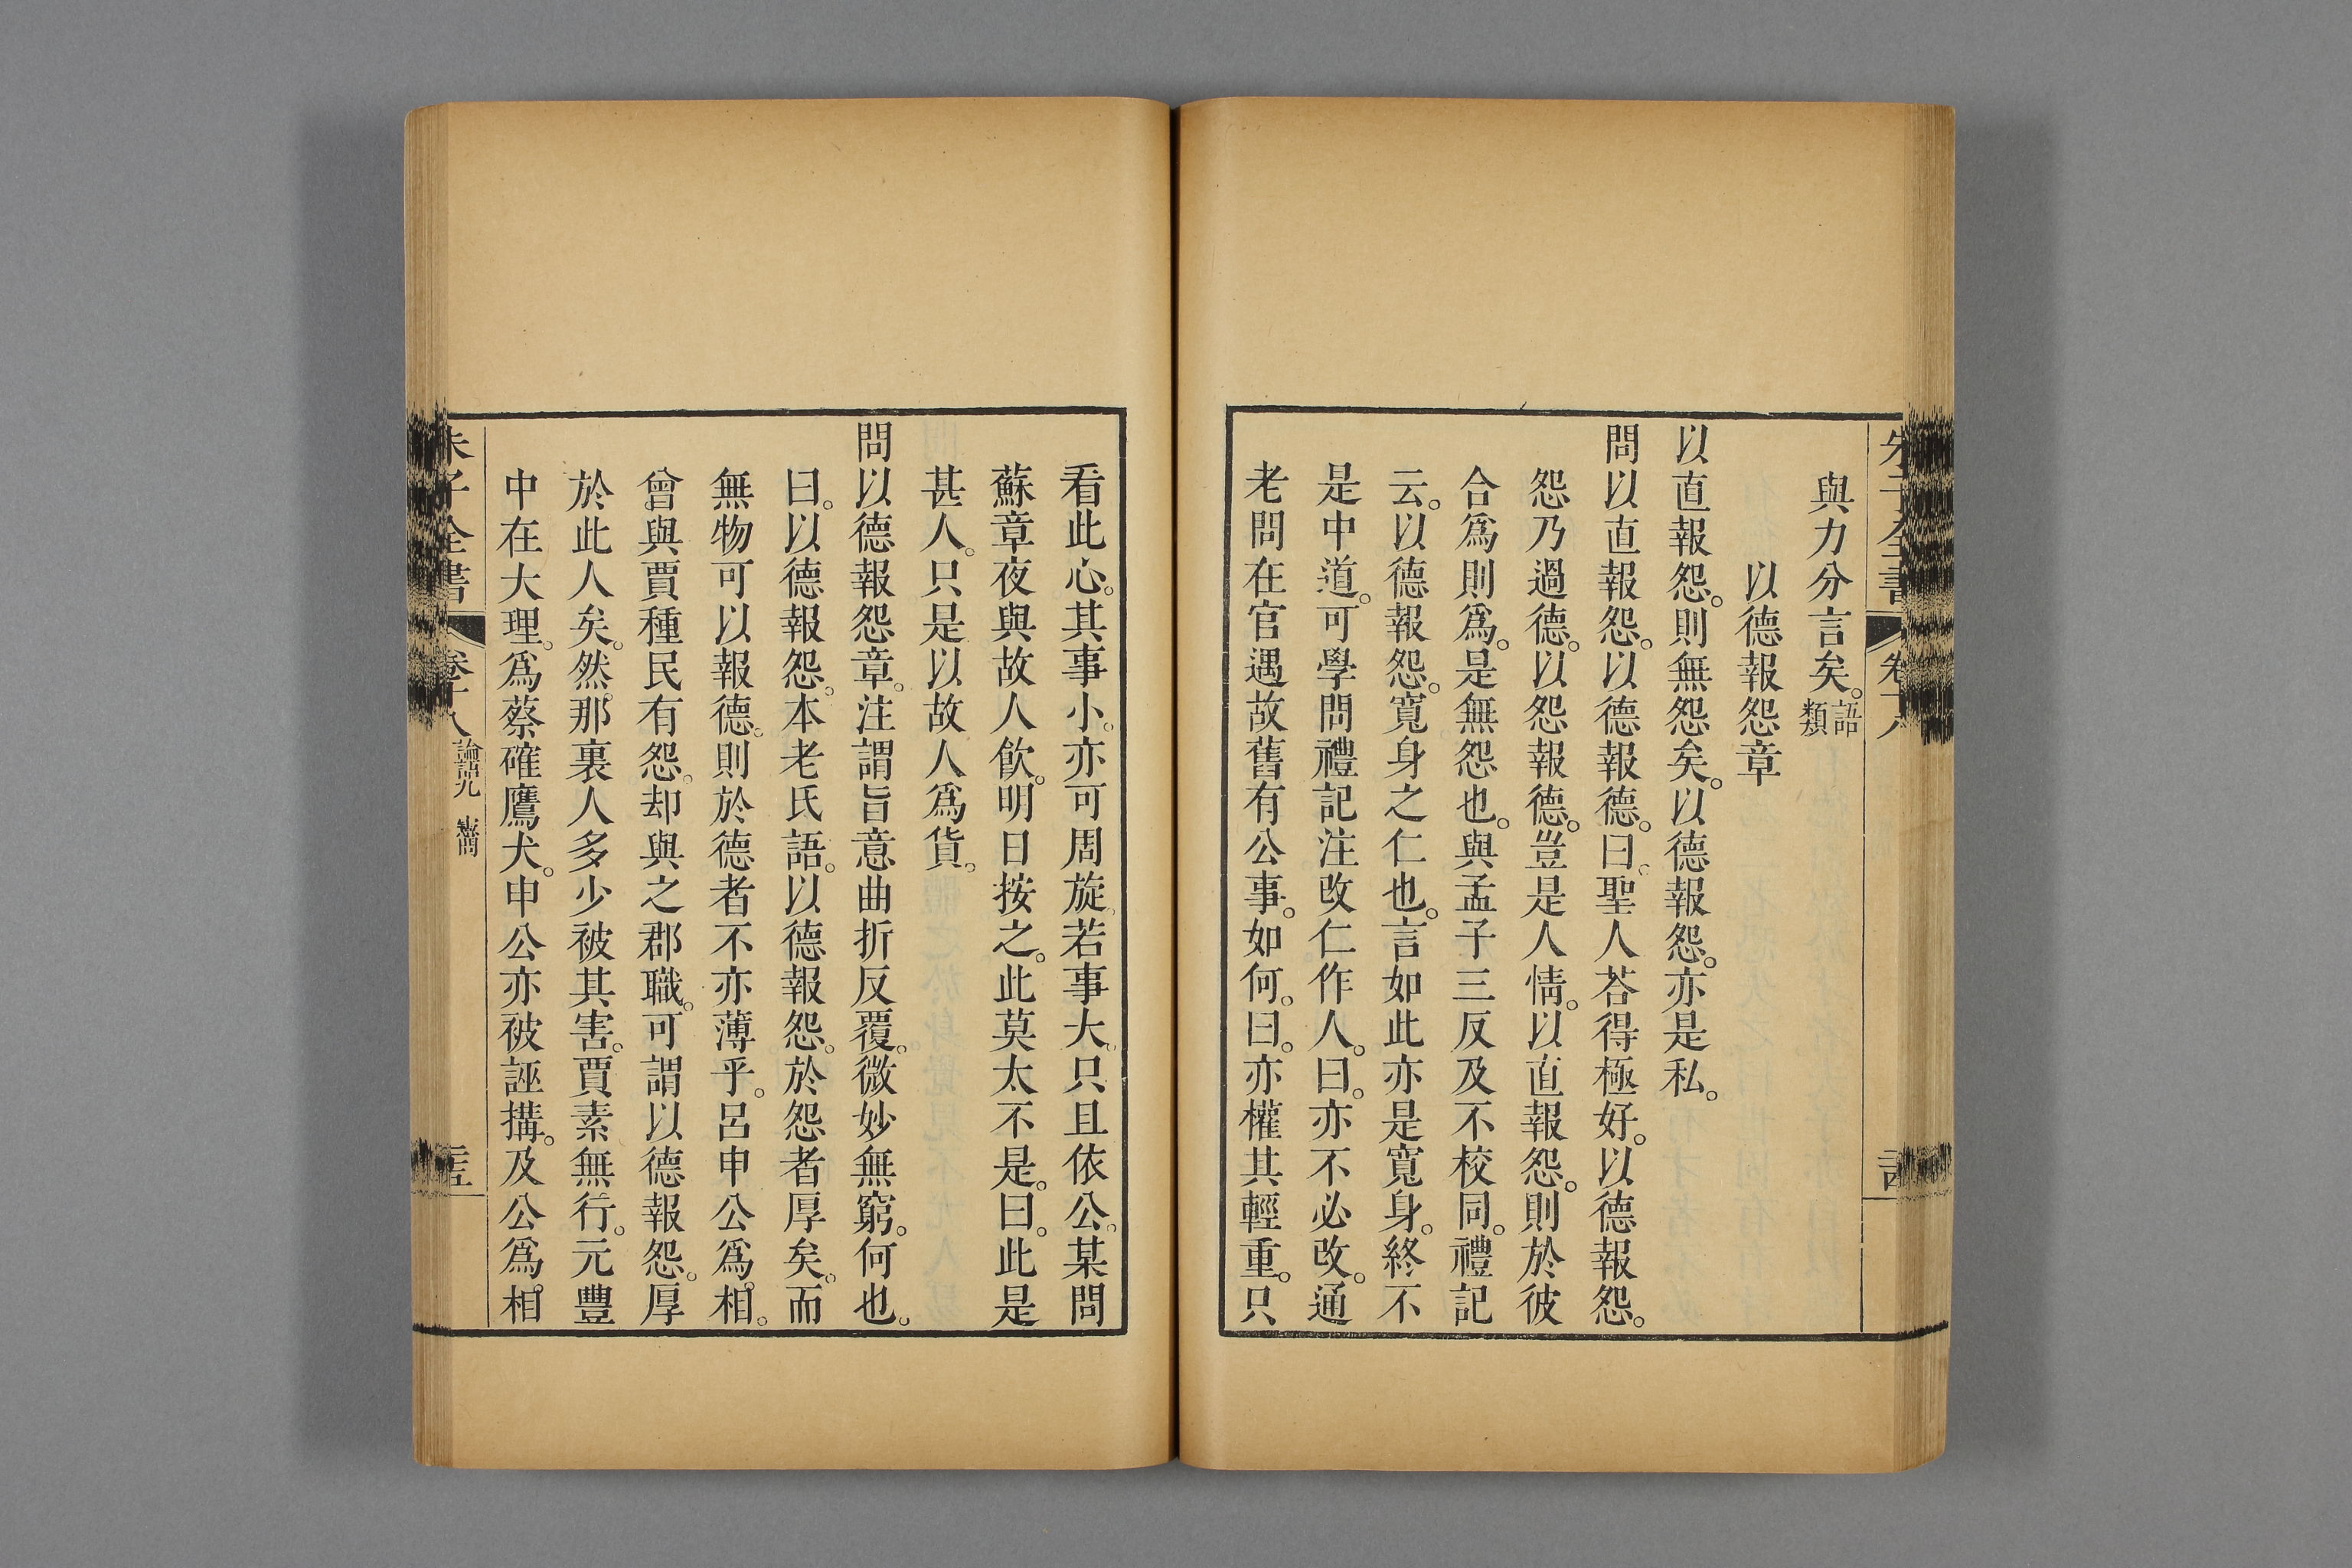 朱子全書 卷十八
與力分言矣。語類
以德報怨章
以直報怨。則無怨矣。以德報怨。亦是私。
問以直報怨。以德報德。曰。聖人荅得極好。以德報怨。
怨乃過德。以怨報德。豈是人情。以直報怨。則於彼
合爲則爲。是無怨也。與孟子三反及不校同。禮記
云。以德報怨。寬身之仁也。言如此亦是寬身。終不
是中道。可學問禮記注改仁作人。曰。亦不必改。通
老問在官遇故舊有公事。如何。曰。亦權其輕重。只
看此心。其事小。亦可周旋。若事大。只且依公。某問
蘇章夜與故人飮。明日按之。此莫太不是。曰。此是
甚人。只是以故人爲貨。
問以德報怨章。注謂旨意曲折反覆。微妙無窮。何也。
曰。以德報怨。本老氏語。以德報怨。於怨者厚矣。而
無物可以報德。則於德者不亦薄乎。呂申公爲相。
曾與賈種民有怨。却與之郡職。可謂以德報怨。厚
於此人矣。然那裏人多少被其害。賈素無行。元豐
中在大理。爲蔡確鷹犬。申公亦被誣搆。及公爲相
朱子全書 卷十八 論語九 憲問